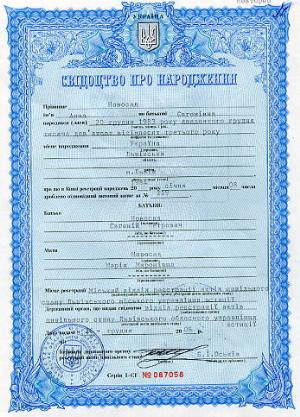 УКРАЇНА
СВІДОЦТВО ПРО НАРОДЖЕННЯ
Прізвище Новосад
ім'я Анна по батькові Євгенівна
народився (лась) 20 грудня 1983 року двадцятого грудня
тисяча дев'ятсот вісімдесят третього року
місце народження Україна
Львівська
про що в Книзі реєстрації народжень 20 року січня 08 числа
зроблено відповідний актовий запис за №
БАТЬКИ:
Батько Новосад
Євгеній Петрович
Мати Новосад
Марія Миронівна
Місце реєстрації Міський відділ реєстрації актів цивільного
стану Львівського міського управління юстиції
Державний орган, що видав свідоцтво відділ реєстрації актів
цивільного стану Львівського обласного управління
юстиції
Дата видачі грудня 2006 р.
Керівник державного органу
Б.І.Оськів
Серія 1-СГ № 087058